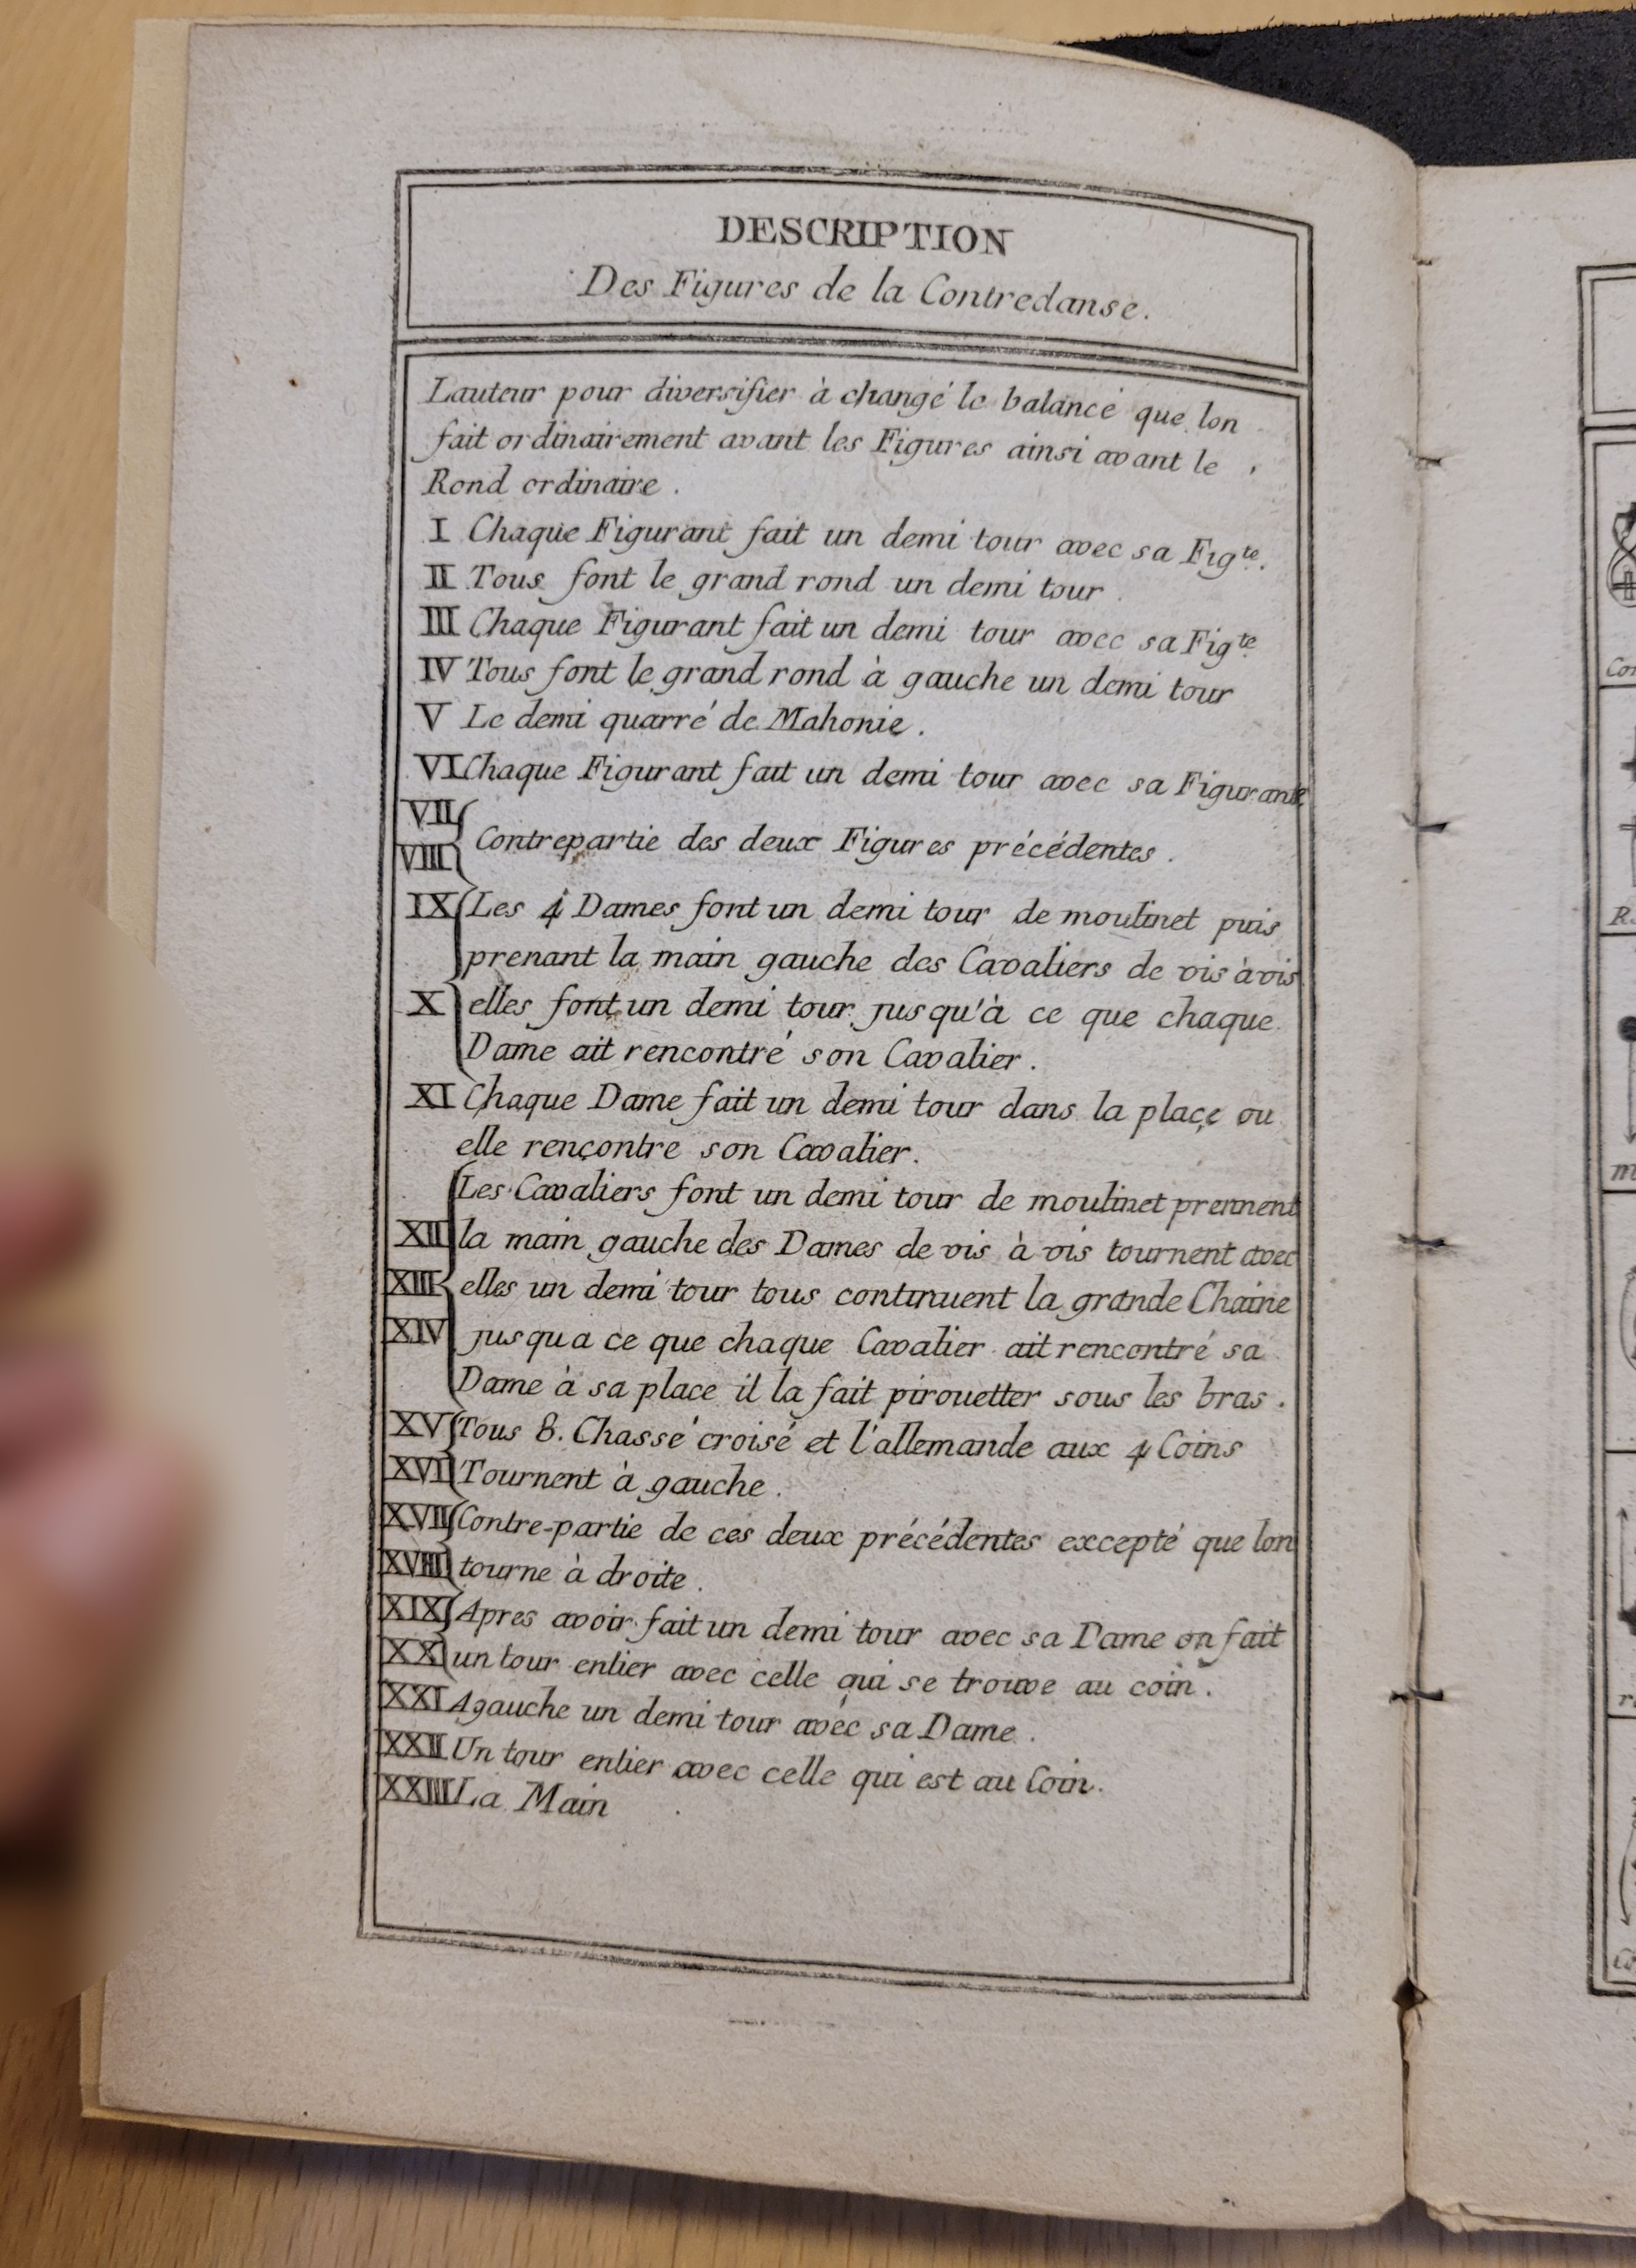 DESCRIPTION
Des Figures de la Contredanse.
Lauteur pour diversifier à changé le balancé que lon
fait ordinairement avant les Figures ainsi avant le
Rond ordinaire.
I Chaque Figurant fait un demi tour avec sa Figte.
II Tous font le grand rond un demi tour.
III Chaque Figurant fait un demi tour avec sa Figte
IV Tous font le grand rond à gauche un demi tour
V Le demi quarré de Mahonie.
VI Chaque Figurant fait un demi tour avec sa Figurante
VII
VIII Contrepartie des deux Figures précédentes.
IX Les 4 Dames font un demi tour de moulinet puis
prenant la main gauche des Cavaliers de vis à vis
X elles font un demi tour jusqu'à ce que chaque
Dame ait rencontré son Cavalier.
XI Chaque Dame fait un demi tour dans la plaçe ou
elle rençontre son Cavalier.
Les Cavaliers font un demi tour de moulinet prennent
XII la main gauche des Dames de vis à vis tournent avec
XIII elles un demi tour tous continuent la grande Chaine
XIV jusqu a ce que chaque Cavalier ait rencontré sa
Dame à sa place il la fait pirouetter sous les bras.
XV Tous 8. Chassé croisé et l'allemande aux 4 Coins
XVI Tournent à gauche.
XVII Contre-partie de ces deux précédentes excepté que lon
XVIII tourne à droite.
XIX Apres avoir fait un demi tour avec sa Dame on fait
XX un tour entier avec celle qui se trouve au coin.
XXI Agauche un demi tour avec sa Dame.
XXII Un tour entier avec celle qui est au Coin.
XXIII La Main